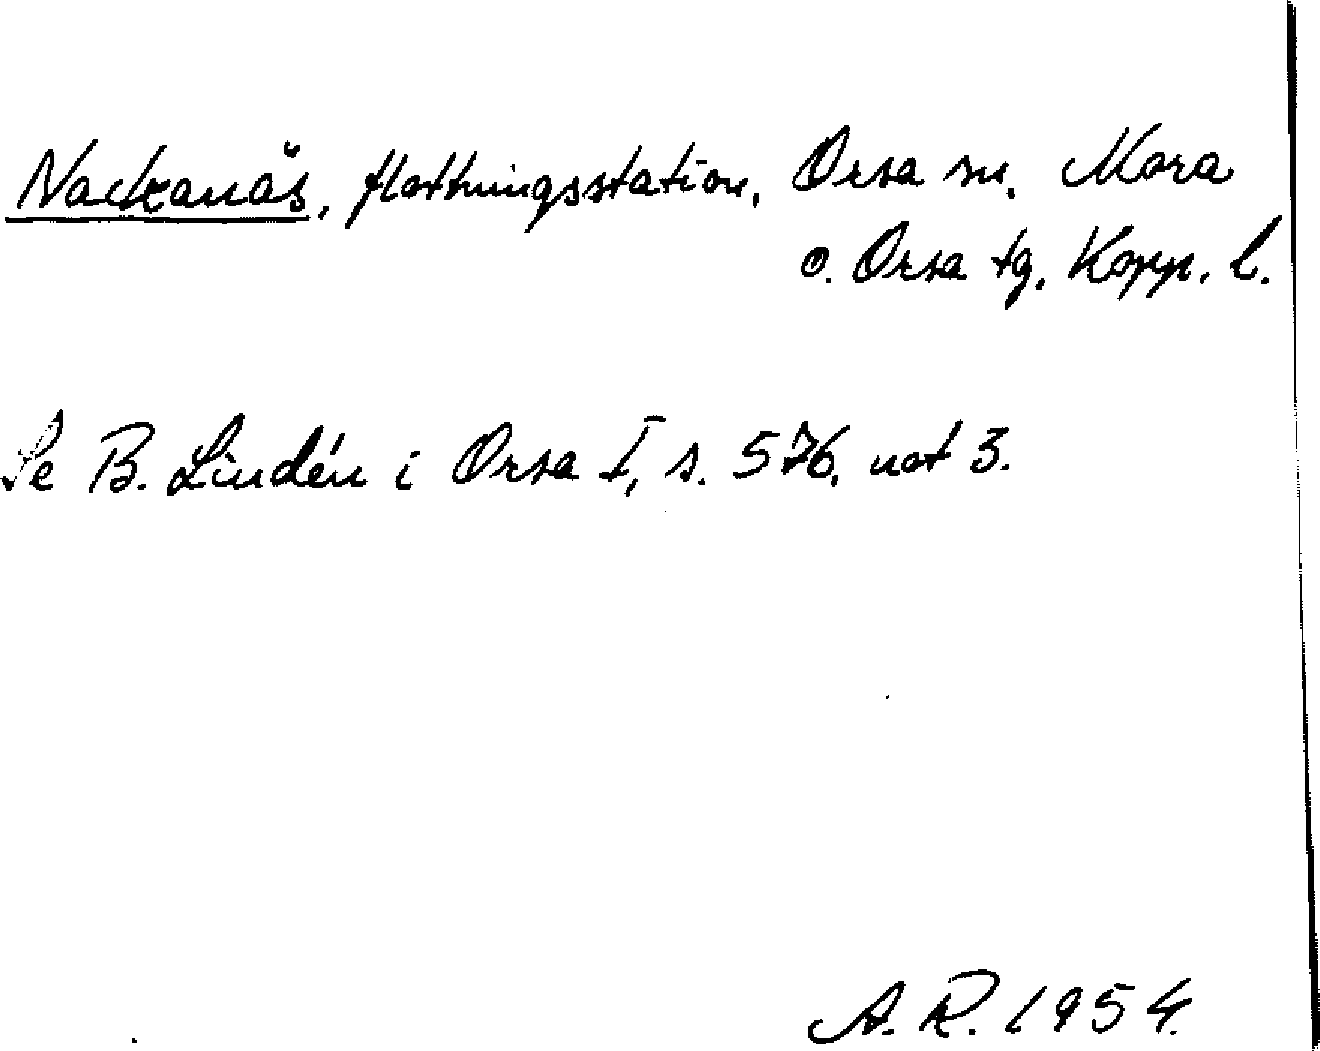 Nackanäs, flottningsstation, Orsa sn. Mora
o. Orsa tg. Kopp. l.
Se B. Lindén i Orsa I, s. 576, not 3.
A.R. 1954.